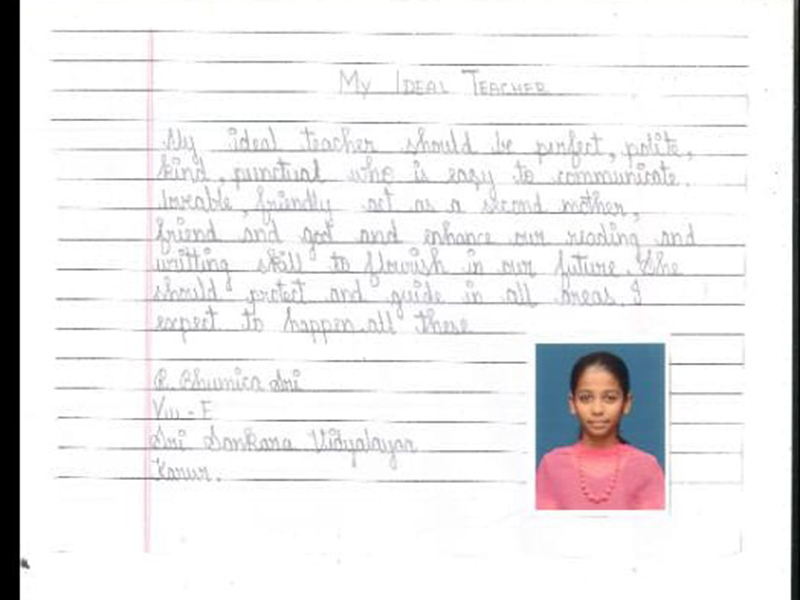 MY IDEAL TEACHER
My ideal teacher should be perfect, polite,
kind, punctual who is easy to communicate.
loveable, friendly act as a second mother,
friend and god and enhance our reading and
writting skill to flourish in our future. She
should protect and guide in all areas. I
expect to happen all these
R. Bhumica Sri
VIII - F
Sri Sankara Vidyalayaa